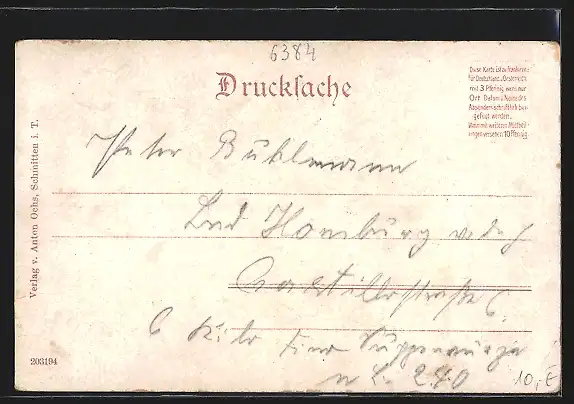 6384
Drucksache
Diese Karte ist zu frankieren:
für Deutschland u. Oesterreich
mit 3 Pfennig, wenn nur
Ort, Datum u. Name des
Absenders schriftlich bei-
gefügt werden.
Wenn mit weiteren Mitthei-
lungen versehen 10 Pfennig.
Peter Buhlmann
Bad Homburg v. d. H
6.
6 Kilo
2.40
10,- €
Verlag v. Anton Ochs, Schmitten i. T.
203194